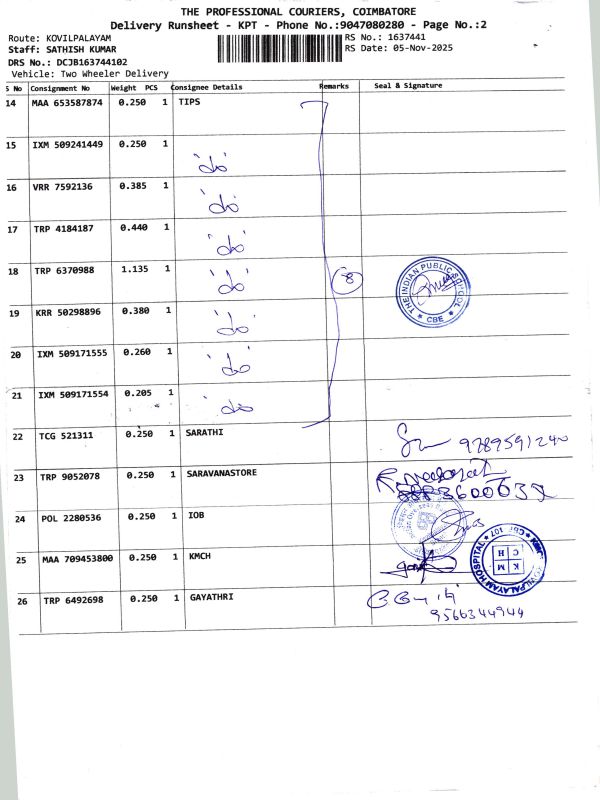 THE PROFESSIONAL COURIERS, COIMBATORE
Delivery Runsheet - KPT - Phone No.:9047080280 - Page No.:2
Route: KOVILPALAYAM
RS No.: 1637441
Staff: SATHISH KUMAR
RS Date: 05-Nov-2025
DRS No.: DCJB163744102
Vehicle: Two Wheeler Delivery
S No Consignment No Weight PCS Consignee Details Remarks Seal & Signature
14 MAA 653587874 0.250 1 TIPS
15 IXM 509241449 0.250 1 "do"
16 VRR 7592136 0.385 1 "do"
17 TRP 4184187 0.440 1 "do"
18 TRP 6370988 1.135 1 "do" 8 THE INDIAN PUBLIC SCHOOL * CBE *
19 KRR 50298896 0.380 1 "do"
20 IXM 509171555 0.260 1 "do"
21 IXM 509171554 0.205 1 "do"
22 TCG 521311 0.250 1 SARATHI 9789591240
23 TRP 9052078 0.250 1 SARAVANASTORE
24 POL 2280536 0.250 1 IOB
25 MAA 709453800 0.250 1 KMCH K M C H
26 TRP 6492698 0.250 1 GAYATHRI
9566344944